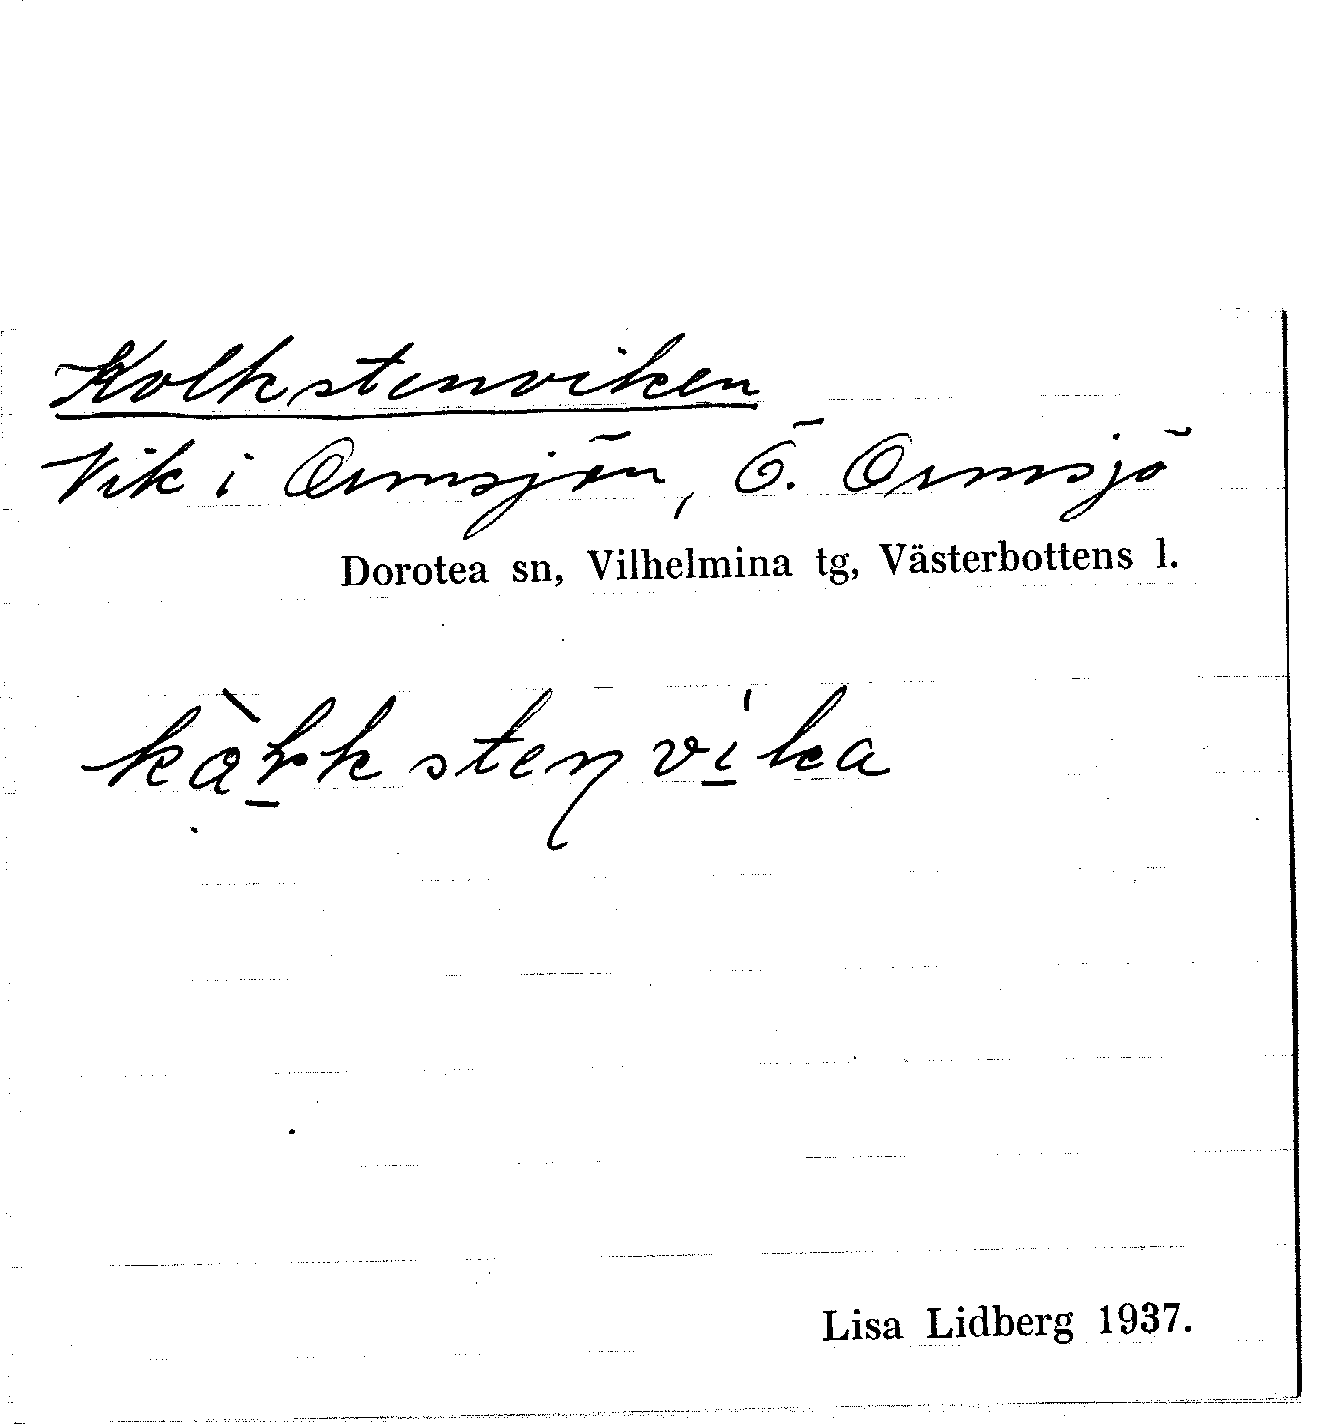 Kolkstenviken
Vik i Ormsjön, Ö. Ormsjö
Dorotea sn, Vilhelmina tg, Västerbottens l.
Lisa Lidberg 1937.